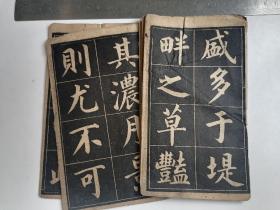 盛多于堤
畔之草豔
其濃月
則尤不可